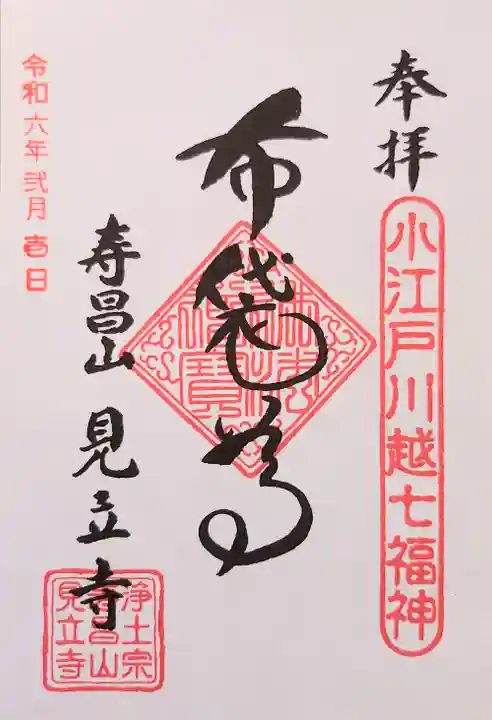 奉拝
小江戸川越七福神
布袋尊
佛法僧寶
寿昌山 見立寺
浄土宗
寿昌山
見立寺
令和六年弐月壱日